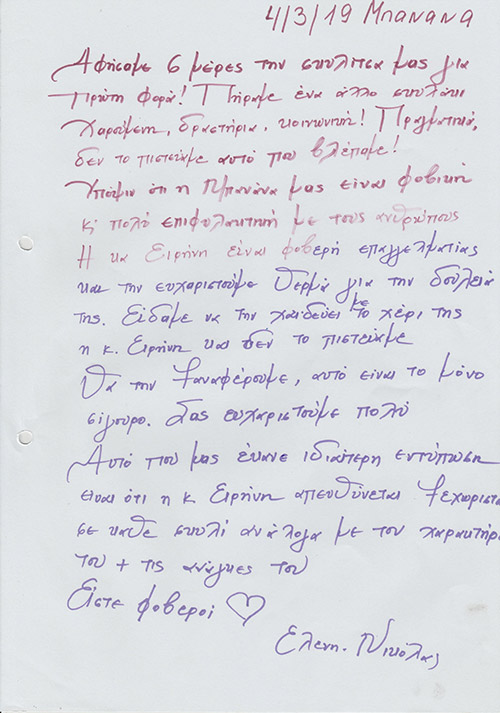 4/3/19 Μπανανα
Αφήσαμε 6 μέρες την σκυλίτσα μας για
πρώτη φορά! Πήραμε ένα άλλο σκυλάκι
χαρούμενη, δραστήρια, κοινωνική! Πραγματικά,
δεν το πιστεύαμε αυτό που βλέπαμε!
Υπόψιν ότι η Μπανάνα μας είναι φοβική
κ' πολύ επιφυλακτική με τους ανθρώπους
Η κα Ειρήνη είναι φοβερή επαγγελματίας
και την ευχαριστούμε θερμά για την δουλειά
της. Είδαμε να την χαϊδεύει με το χέρι της
η κ. Ειρήνη και δεν το πιστεύαμε
Θα την ξαναφέρουμε, αυτό είναι το μόνο
σίγουρο. Σας ευχαριστούμε πολύ
Αυτό που μας έκανε ιδιαίτερη εντύπωση
είναι ότι η κ Ειρήνη απευθύνεται ξεχωριστά
σε κάθε σκυλί ανάλογα με τον χαρακτήρα
του + τις ανάγκες του
Είστε φοβεροί ♡
Ελενη. Νικόλας